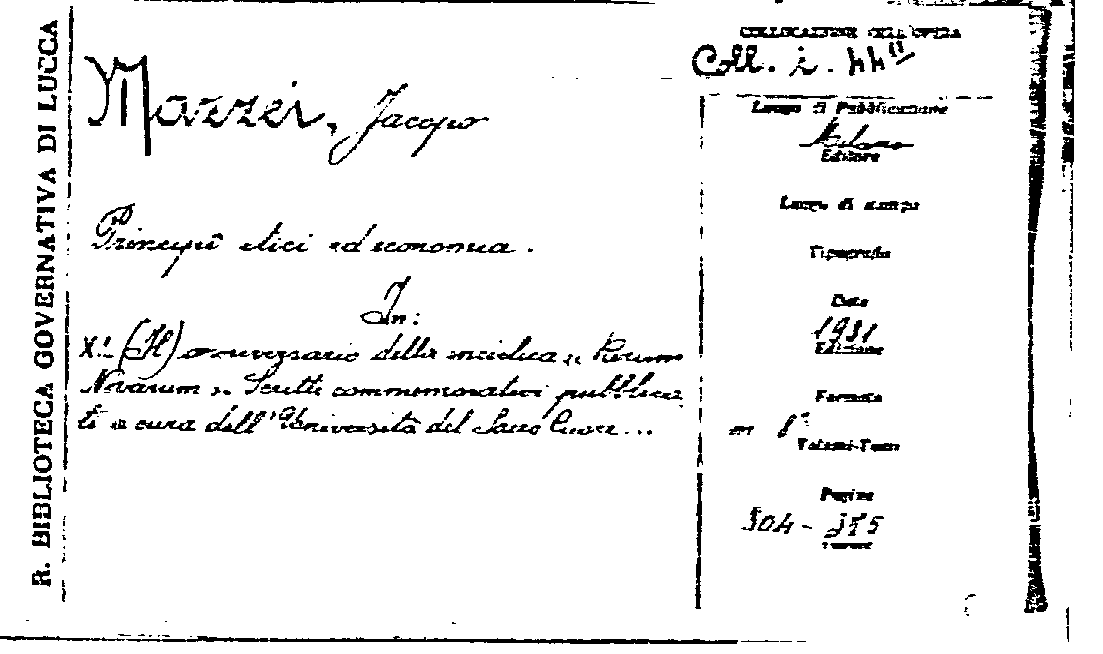 R. BIBLIOTECA GOVERNATIVA DI LUCCA
Mazzei, Jacopo
Principî etici ed economia.
In:
(Il) anniversario della enciclica "Rerum
Novarum". Scritti commemorativi pubblica
ti a cura dell'Università del Sacro Cuore...
COLLOCAZIONE DELL'OPERA
Coll. i. 44
Luogo di Pubblicazione
Milano
Editore
Luogo di stampa
Tipografia
Data
1931
Edizione
Formato
in 8°
Volumi-Tomi
Pagine